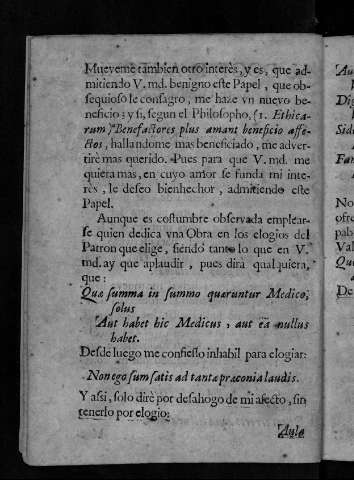 Mueveme tambien otro interès, y es, que ad-
mitiendo V. md. benigno este Papel, que ob-
sequioso le consagro, me haze vn nuevo be-
neficio; y si, segun el Philosopho, (1. Ethica-
rum) Benefactores plus amant beneficio affe-
ctos, hallandome mas beneficiado, me adver-
tirè mas querido. Pues para que V. md. me
quiera mas, en cuyo amor se funda mi inte-
rès, le deseo bienhechor, admitiendo este
Papel.
Aunque es costumbre observada emplear-
se quien dedica vna Obra en los elogios del
Patron que elige, siendo tanto lo que en V.
md. ay que aplaudir, pues dirà qualquiera,
que:
Quæ summa in summo quæruntur Medico,
solus
Aut habet hic Medicus, aut ea nullus
habet.
Desde luego me confiesso inhabil para elogiar:
Non ego sum satis ad tantæ præconia laudis.
Y assi, solo dirè por desahogo de mi afecto, sin
tenerlo por elogio: